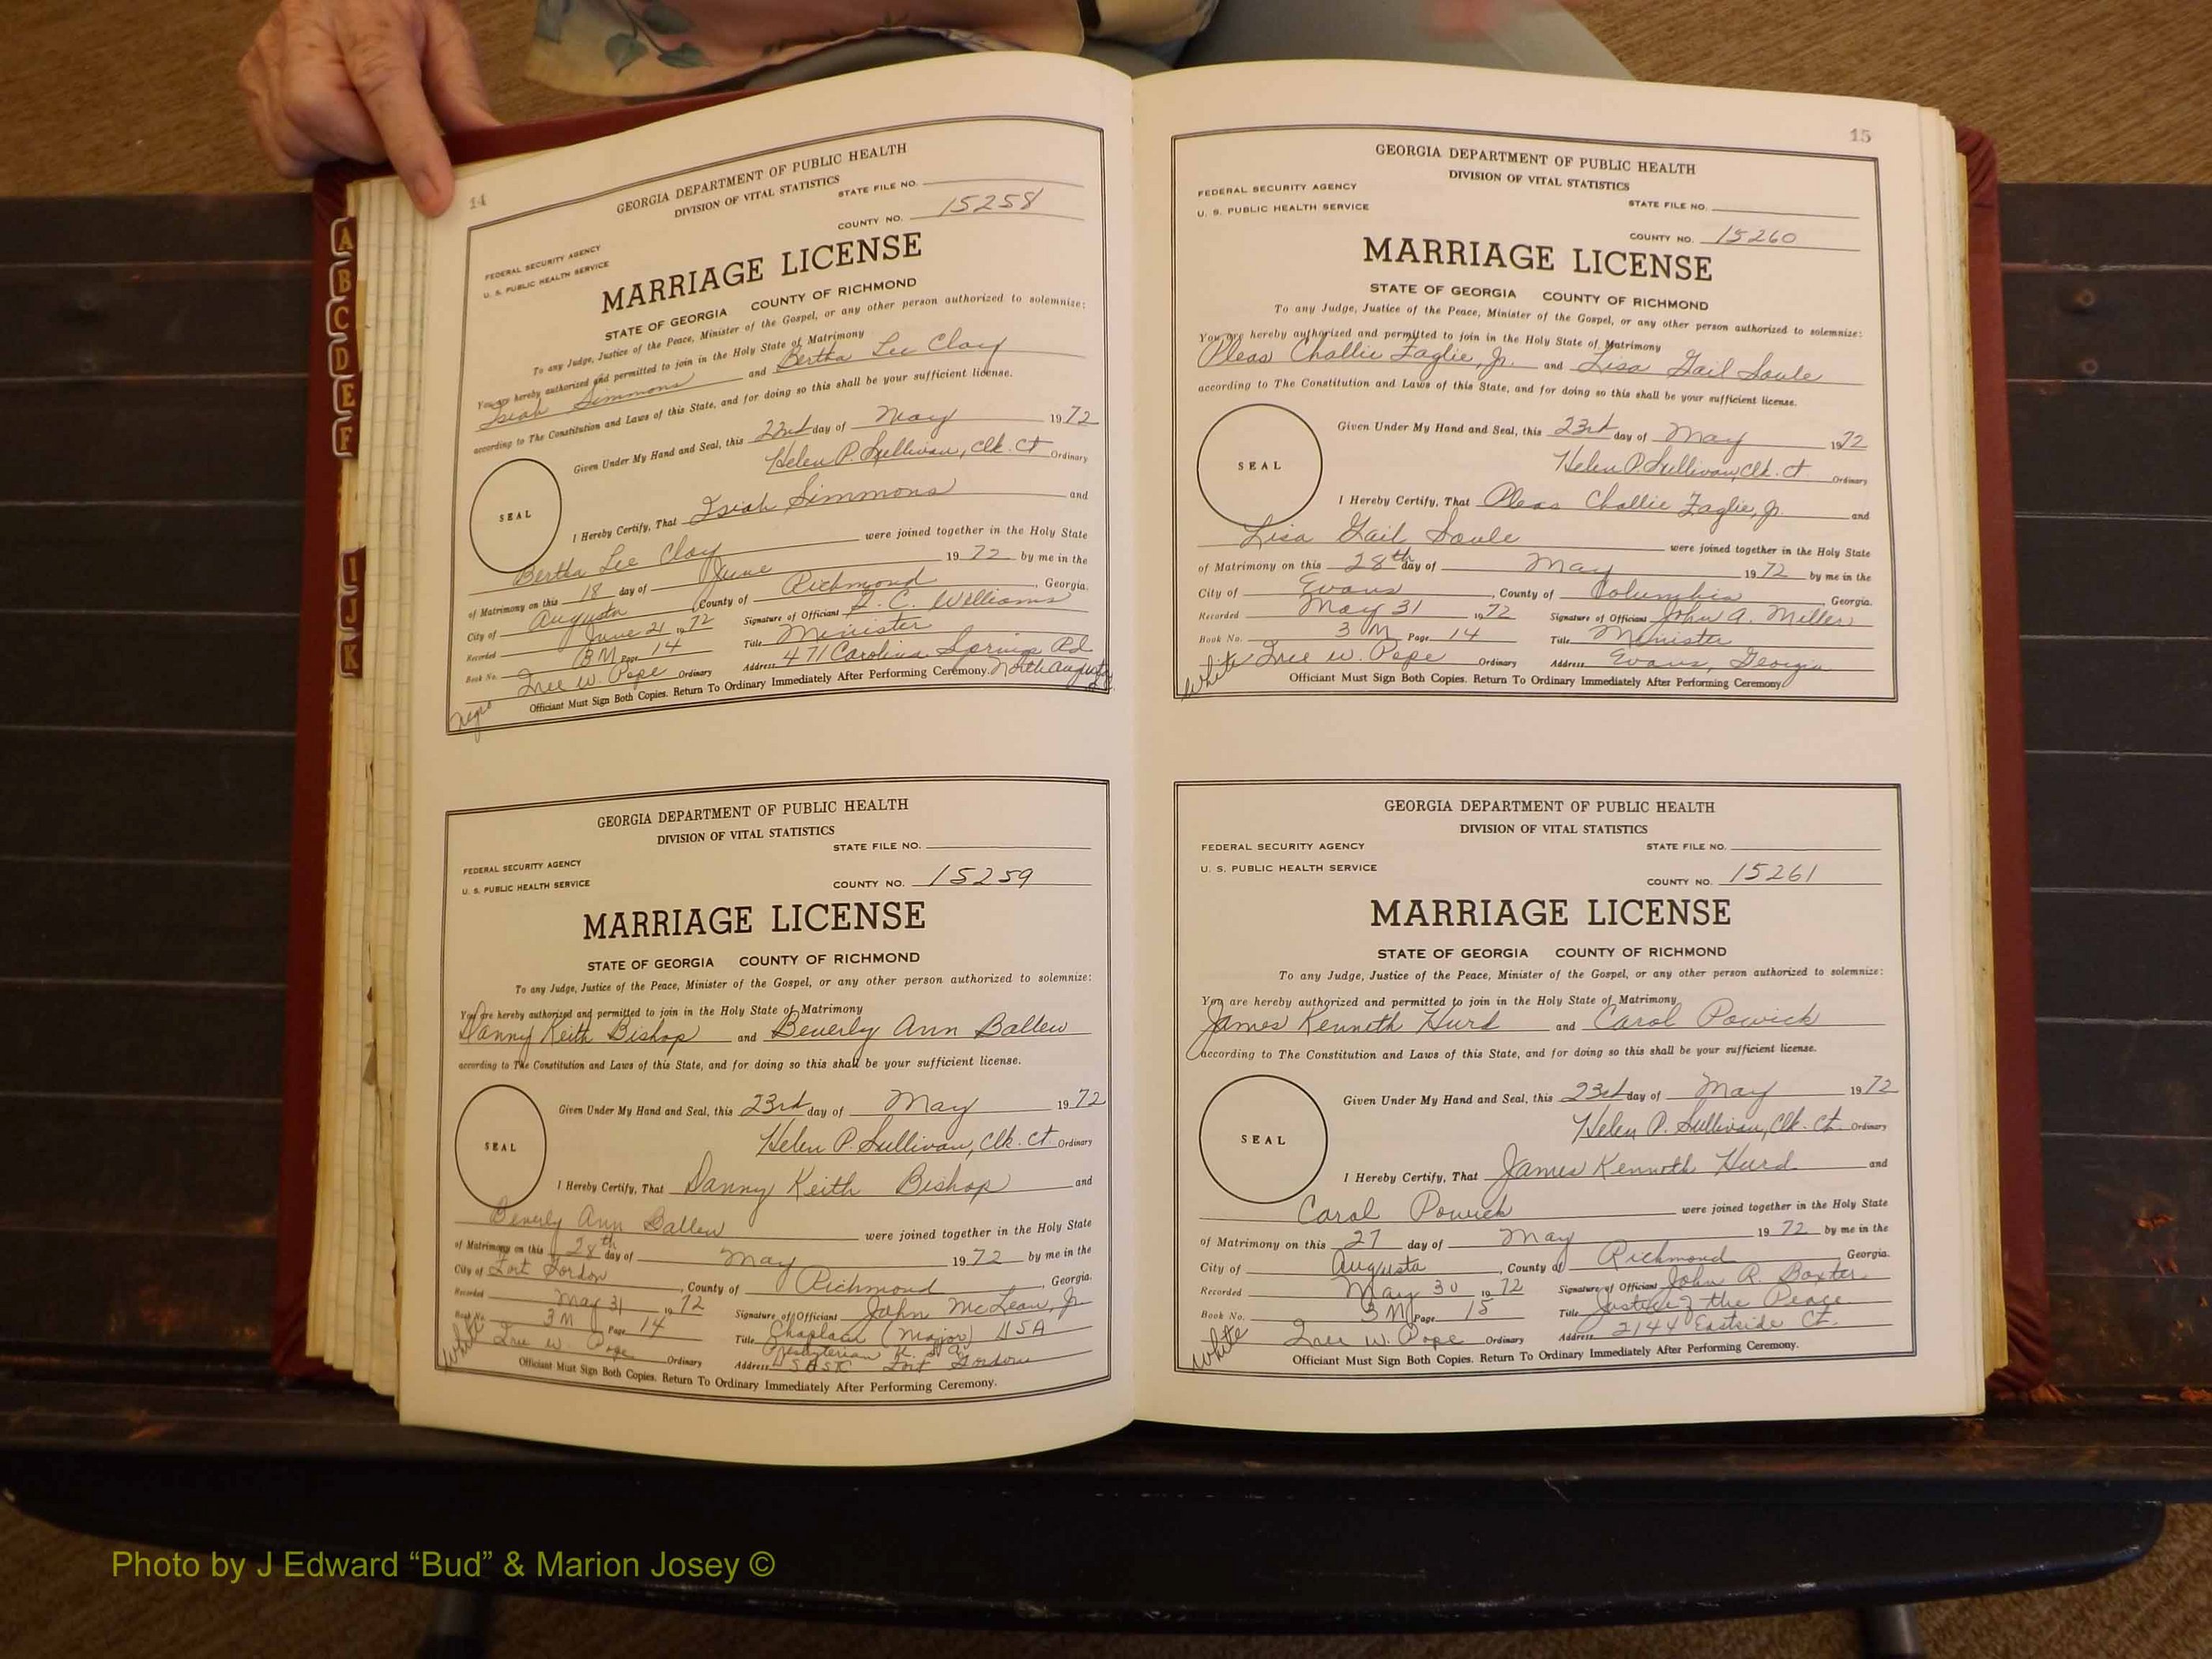 14
GEORGIA DEPARTMENT OF PUBLIC HEALTH
DIVISION OF VITAL STATISTICS
STATE FILE NO.
FEDERAL SECURITY AGENCY
U. S. PUBLIC HEALTH SERVICE
COUNTY NO. 15258
MARRIAGE LICENSE
STATE OF GEORGIA COUNTY OF RICHMOND
To any Judge, Justice of the Peace, Minister of the Gospel, or any other person authorized to solemnize:
You are hereby authorized and permitted to join in the Holy State of Matrimony
Isiah Simmons and Bertha Lee Clay
according to The Constitution and Laws of this State, and for doing so this shall be your sufficient license.
Given Under My Hand and Seal, this 23rd day of May 1972
Helen P. Sullivan, Clk. Ct Ordinary
SEAL
I Hereby Certify, That Isiah Simmons and
Bertha Lee Clay were joined together in the Holy State
of Matrimony on this 18 day of June 1972 by me in the
City of Augusta, County of Richmond, Georgia.
Recorded June 21 1972 Signature of Officiant C. Williams
Book No. 3M Page 14 Title Minister
W. Pope Ordinary Address 471 Carolina Springs Rd
North Augusta
Officiant Must Sign Both Copies. Return To Ordinary Immediately After Performing Ceremony.
Negro
GEORGIA DEPARTMENT OF PUBLIC HEALTH
DIVISION OF VITAL STATISTICS
STATE FILE NO.
FEDERAL SECURITY AGENCY
U. S. PUBLIC HEALTH SERVICE
COUNTY NO. 15259
MARRIAGE LICENSE
STATE OF GEORGIA COUNTY OF RICHMOND
To any Judge, Justice of the Peace, Minister of the Gospel, or any other person authorized to solemnize:
You are hereby authorized and permitted to join in the Holy State of Matrimony
Danny Keith Bishop and Beverly Ann Ballew
according to The Constitution and Laws of this State, and for doing so this shall be your sufficient license.
Given Under My Hand and Seal, this 23rd day of May 1972
Helen P. Sullivan, Clk. Ct Ordinary
SEAL
I Hereby Certify, That Danny Keith Bishop and
Beverly Ann Ballew were joined together in the Holy State
of Matrimony on this 28th day of May 1972 by me in the
City of Fort Gordon, County of Richmond, Georgia.
Recorded May 31 1972 Signature of Officiant John McLean, Jr
Book No. 3M Page 14 Title Chaplain (Major) USA
Presbyterian
White W. Pope Ordinary Address Fort Gordon
Officiant Must Sign Both Copies. Return To Ordinary Immediately After Performing Ceremony.
15
GEORGIA DEPARTMENT OF PUBLIC HEALTH
DIVISION OF VITAL STATISTICS
FEDERAL SECURITY AGENCY
U. S. PUBLIC HEALTH SERVICE
STATE FILE NO.
COUNTY NO. 15260
MARRIAGE LICENSE
STATE OF GEORGIA COUNTY OF RICHMOND
To any Judge, Justice of the Peace, Minister of the Gospel, or any other person authorized to solemnize:
You are hereby authorized and permitted to join in the Holy State of Matrimony
Pleas Challie Faglie, Jr. and Lisa Gail Soule
according to The Constitution and Laws of this State, and for doing so this shall be your sufficient license.
Given Under My Hand and Seal, this 23rd day of May 1972
Helen P. Sullivan, Clk. Ct. Ordinary
SEAL
I Hereby Certify, That Pleas Challie Faglie, Jr. and
Lisa Gail Soule were joined together in the Holy State
of Matrimony on this 28th day of May 1972 by me in the
City of Evans, County of Columbia, Georgia.
Recorded May 31 1972 Signature of Officiant John A. Miller
Book No. 3M Page 14 Title Minister
White W. Pope Ordinary Address Evans, Georgia
Officiant Must Sign Both Copies. Return To Ordinary Immediately After Performing Ceremony.
GEORGIA DEPARTMENT OF PUBLIC HEALTH
DIVISION OF VITAL STATISTICS
FEDERAL SECURITY AGENCY
STATE FILE NO.
U. S. PUBLIC HEALTH SERVICE
COUNTY NO. 15261
MARRIAGE LICENSE
STATE OF GEORGIA COUNTY OF RICHMOND
To any Judge, Justice of the Peace, Minister of the Gospel, or any other person authorized to solemnize:
You are hereby authorized and permitted to join in the Holy State of Matrimony
James Kenneth Hurd and Carol Powick
according to The Constitution and Laws of this State, and for doing so this shall be your sufficient license.
Given Under My Hand and Seal, this 23rd day of May 1972
Helen P. Sullivan, Clk. Ct. Ordinary
SEAL
I Hereby Certify, That James Kenneth Hurd and
Carol Powick were joined together in the Holy State
of Matrimony on this 27 day of May 1972 by me in the
City of Augusta, County of Richmond, Georgia.
Recorded May 30 1972 Signature of Officiant John R. Baxter
Book No. 3M Page 15 Title Justice of the Peace
White W. Pope Ordinary Address 2144 Eastside Ct.
Officiant Must Sign Both Copies. Return To Ordinary Immediately After Performing Ceremony.
A
B
C
D
E
F
I
J
K
Photo by J Edward “Bud” & Marion Josey ©